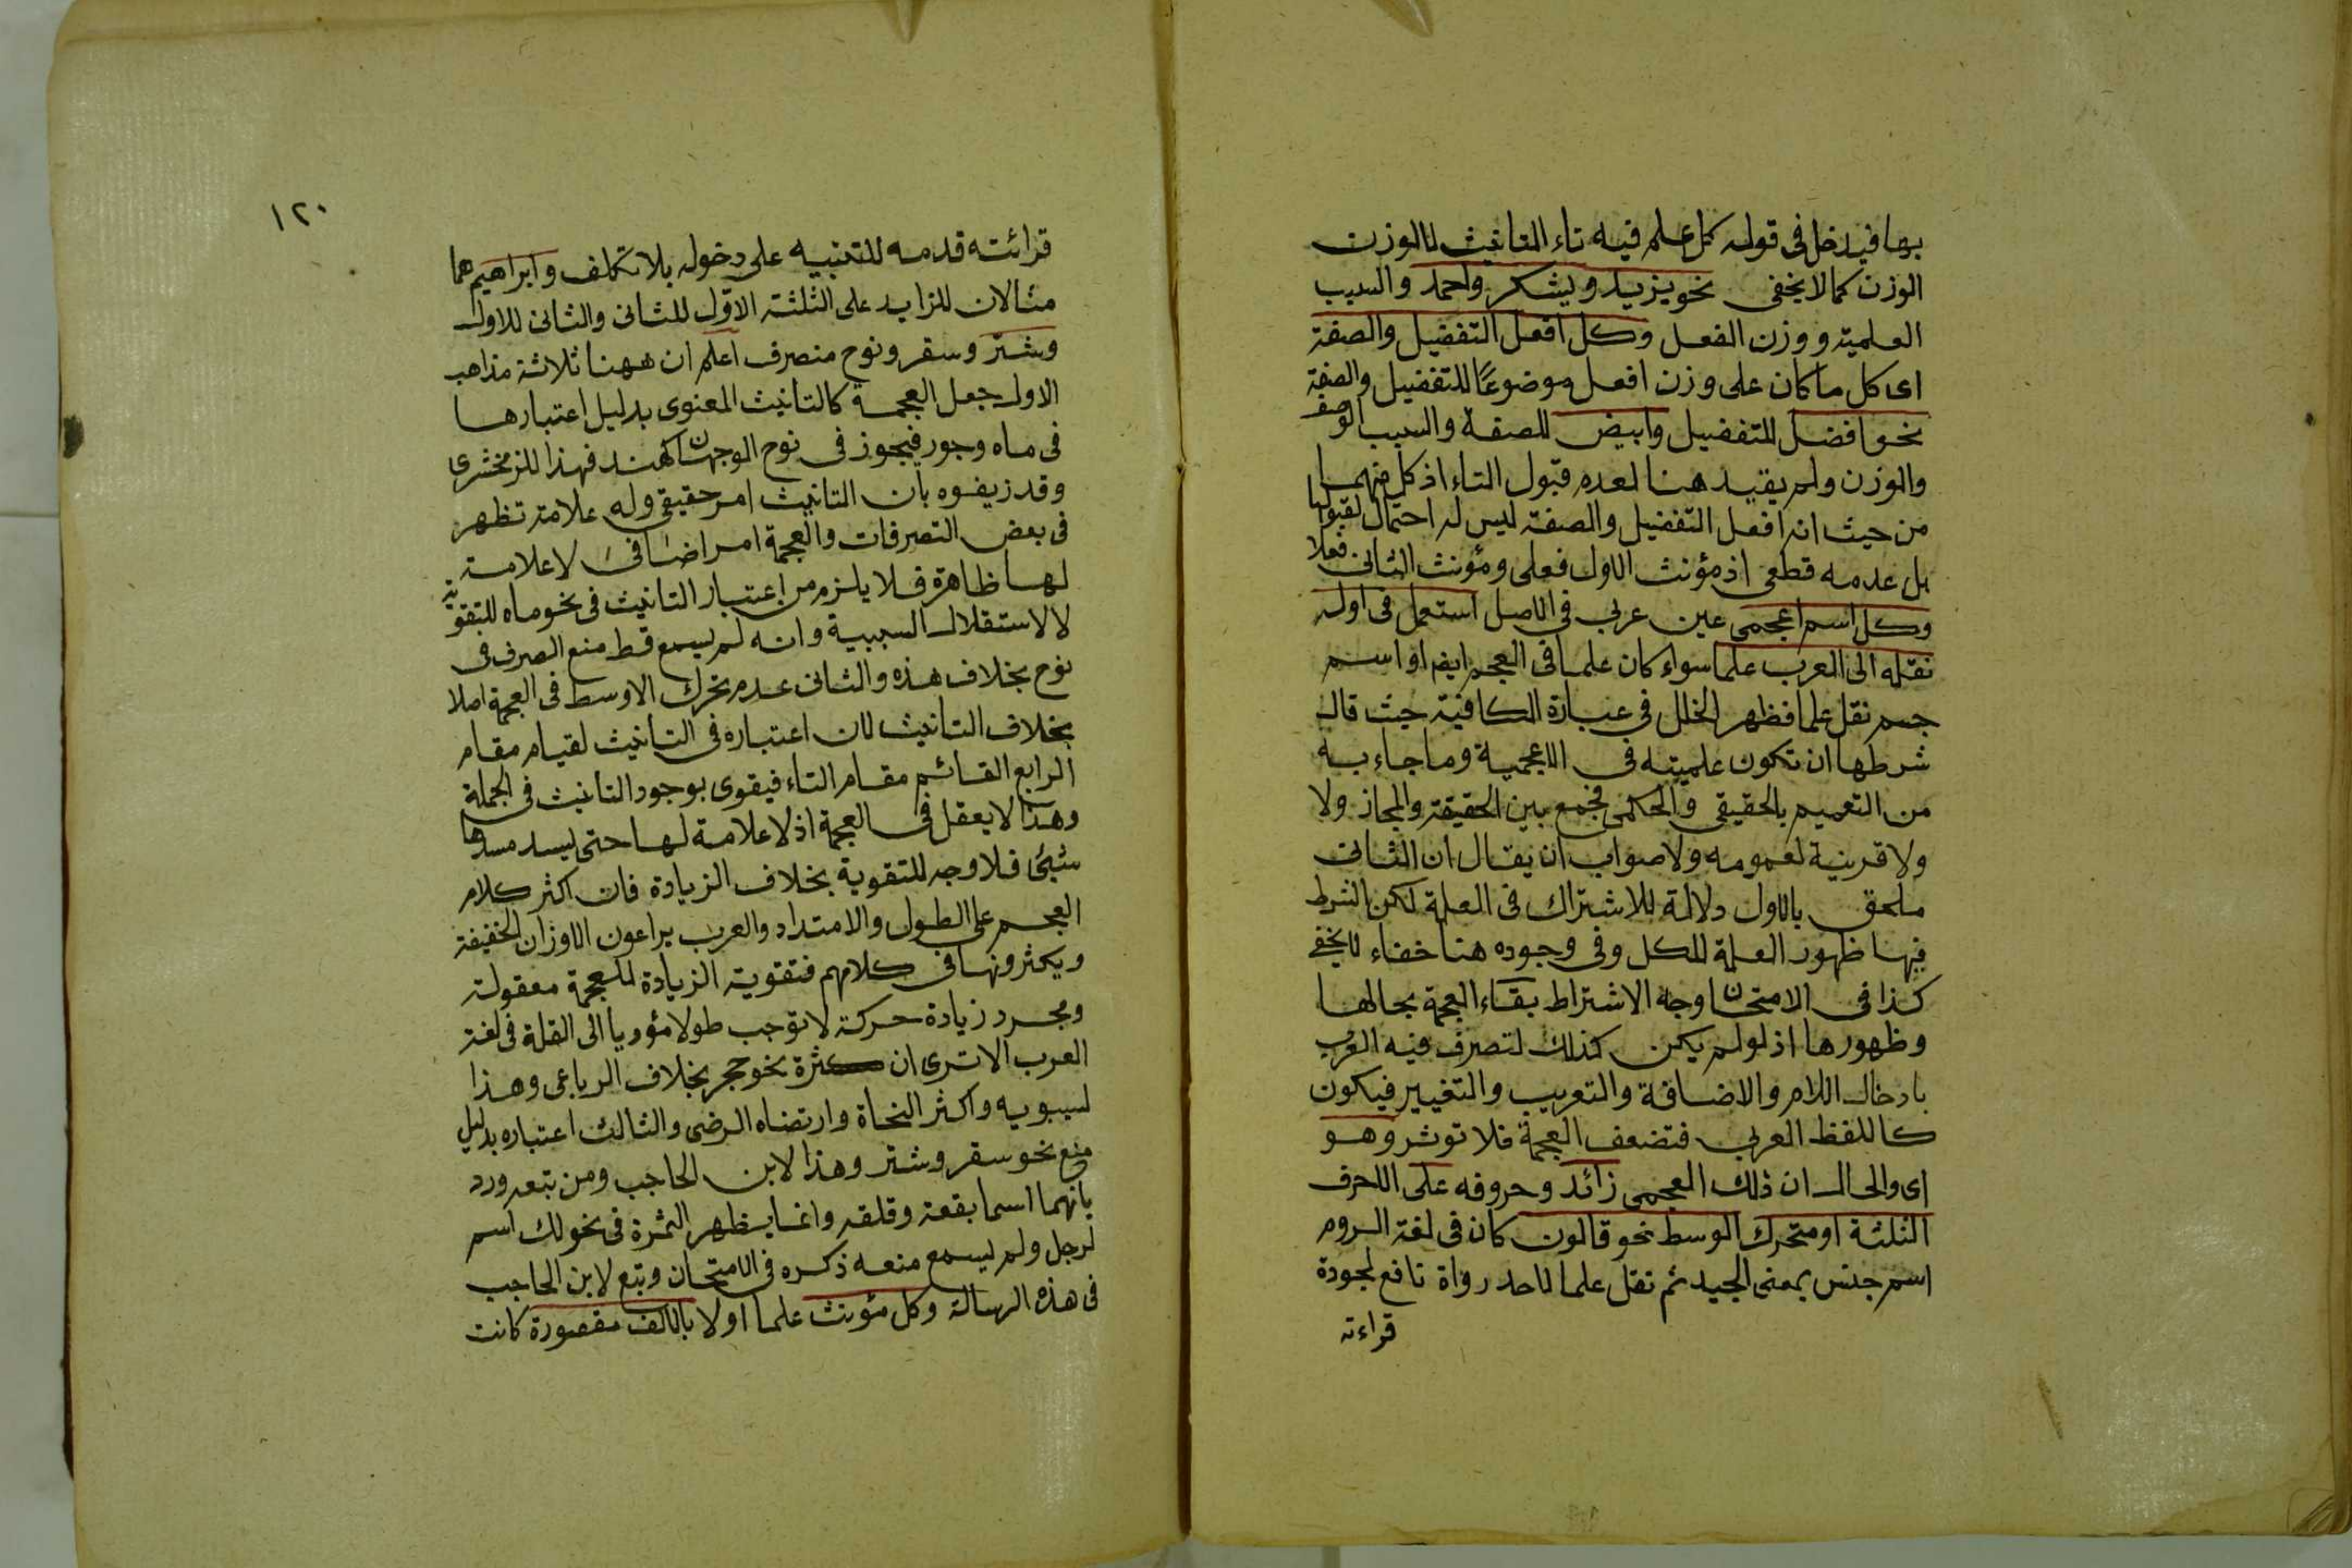 بها فيدخل فى قوله كل علم فيه تاء التانيث لا الوزن
الوزن كما لا يخفى نحو يزيد ويشكر واحمد والسبب
العلمية ووزن الفعل وكل افعل التفضيل والصفة
اى كل ما كان على وزن افعل موضوعًا للتفضيل والصفة
نحو افضل للتفضيل وابيض للصفة والسبب الوصف
والوزن ولم يقيد هنا لعدم قبول التاء اذ كل منهما
من حيث انه افعل التفضيل والصفة ليس له احتمال لقبولها
بل عدمه قطعى اذ مؤنث الاول فعلى ومؤنث الثانى فعلا
وكل اسم اعجمى عين عربي في الاصل استعمل فى اوله
نقله الى العرب علما سواء كان علما فى العجم ايضا او اسم
جسم نقل علما فظهر الخلل في عبارة الكافية حيث قال
شرطها ان تكون علميته في الاعجمية وما جاء به
من التعميم بالحقيقي والحكمى فجمع بين الحقيقة والمجاز ولا
ولا قرينة لعمومه ولا صواب ان يقال ان الثانى
ملحق بالاول دلالة للاشتراك فى العلة لكن الشرط
فيها ظهور العلة للكل وفى وجوده هنا خفاء لا يخفى
كذا فى الامتحان وجه الاشتراط بقاء العجمة بحالها
وظهورها اذ لو لم يكن كذلك لتصرف فيه العرب
بادخال اللام والاضافة والتعريب والتغيير فيكون
كاللفظ العربي فتضعف العجمة فلا توثر وهو
اى والحال ان ذلك العجمى زائد وحروفه على الاحرف
الثلثة او متحرك الوسط نحو قالون كان فى لغة الروم
اسم جنس بمعنى الجيد ثم نقل علما لاحد رواة نافع لجودة
قراءته
١٢٠
قرائته قدمه للتنبيه على دخوله بلا تكلف وابراهيم هما
مثالان للزايد على الثلثة الاوّل للثانى والثانى للاول
وشتر وسقر ونوح منصرف اعلم ان ههنا ثلاثة مذاهب
الاول جعل العجمة كالتانيث المعنوى بدليل اعتبارها
فى ماه وجور فيجوز فى نوح الوجهان كهند فهذا للزمخشرى
وقد زيفوه بان التانيث امر حقيقى وله علامة تظهر
فى بعض التصرفات والعجمة امر اضافى لا علامة
لها ظاهرة فلا يلزم من اعتبار التانيث فى نحو ماه للتقوية
لا لاستقلال السببية وانه لم يسمع قط منع الصرف فى
نوح بخلاف هذه والثانى عدم تحرك الاوسط فى العجمة اصلا
بخلاف التانيث لان اعتباره فى التانيث لقيام مقام
الرابع القائم مقام التاء فيقوى بوجود التانيث فى الجملة
وهذا لا يعقل فى العجمة اذ لا علامة لها حتى ليسد مسدها
شيئ فلا وجه للتقوية بخلاف الزيادة فان اكثر كلام
العجم على الطول والامتداد والعرب يراعون الاوزان الخفيفة
ويكثرونها فى كلامهم فتقوية الزيادة للعجمة معقولة
ومجرد زيادة حركة لا توجب طولا مؤديا الى القلة فى لغة
العرب الا ترى ان كثرة نحو حجر بخلاف الرباعى وهذا
لسيبويه واكثر النحاة وارتضاه الرضى والثالث اعتباره بدليل
منع نحو سقر وشتر وهذا لابن الحاجب ومن تبعه ورد
بانهما اسما بقعة وقلقه وانما يظهر الثمرة فى نحو لك اسم
لرجل ولم يسمع منعه ذكره فى الامتحان وتبع لابن الحاجب
فى هذه الرسالة وكل مؤنث علما اولا بالالف مقصورة كانت